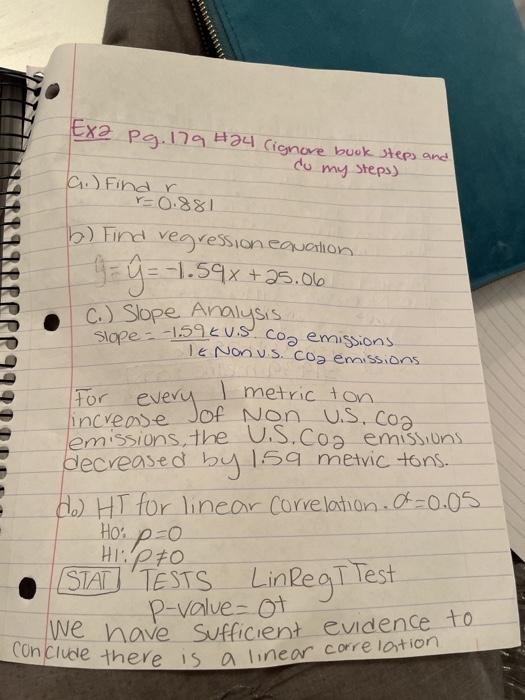 Ex2 Pg. 179 #24 (ignore book steps and
do my steps)
a.) Find r
r=0.881
b) Find regression equation
ŷ = ŷ = -1.59x + 25.06
c.) Slope Analysis
slope = -1.59 ← U.S. CO2 emissions
1 ← Non U.S. CO2 emissions
For every 1 metric ton
increase of Non U.S. CO2
emissions, the U.S. CO2 emissions
decreased by 1.59 metric tons.
d.) HT for linear correlation. α=0.05
H0: ρ=0
H1: ρ≠0
STAT TESTS LinRegTTest
P-value= 0+
We have sufficient evidence to
conclude there is a linear correlation